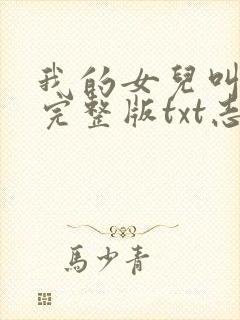 我的女兒叫
完整版txt志
馬少青